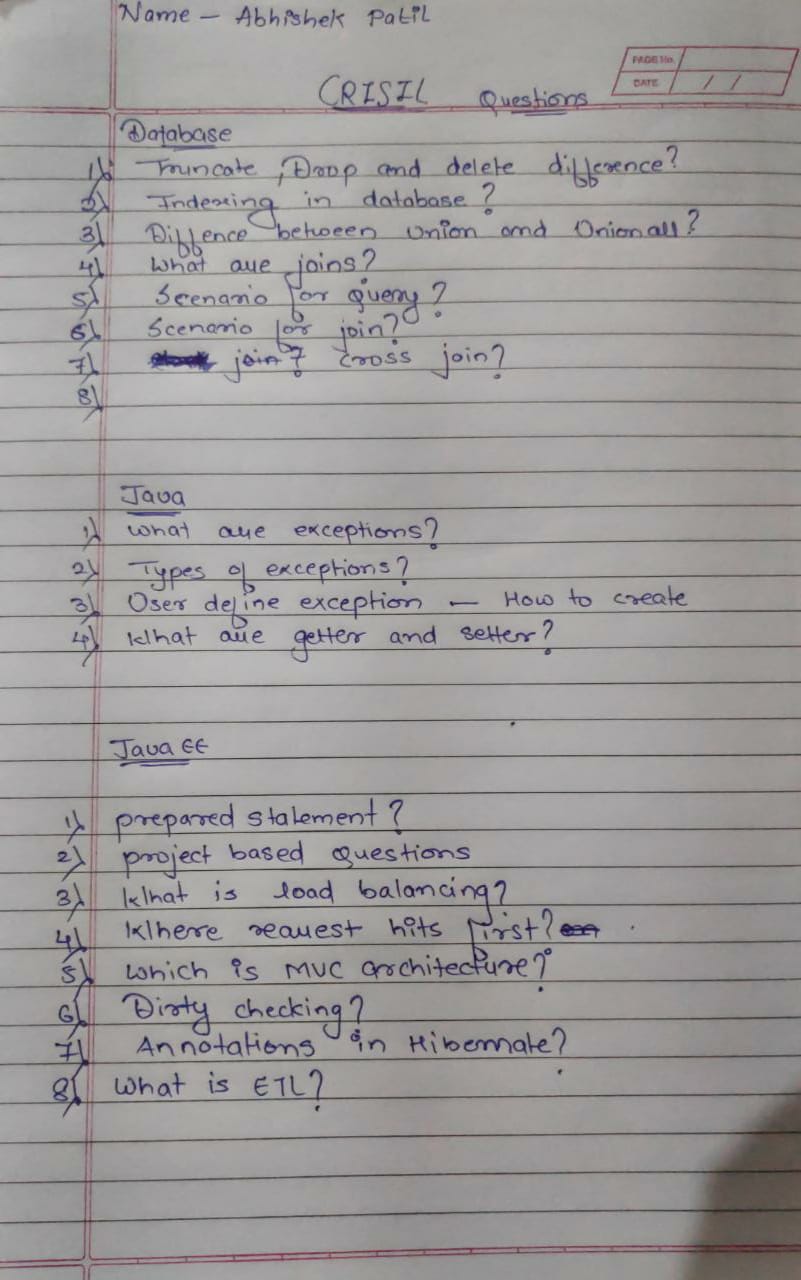 Name - Abhishek Patil
PAGE No.
DATE / /
CRISIL Questions
Database
1) Truncate, Drop and delete difference?
2) Indexing in database?
3) Diffence between Union and Union all?
4) What are joins?
5) Scenario for query?
6) Scenario for join?
7) join? Cross join?
8)
Java
1) What are exceptions?
2) Types of exceptions?
3) User define exception - How to create
4) What are getter and setter?
Java EE
1) prepared statement?
2) project based questions
3) What is load balancing?
4) Where request hits first?
5) Which is MVC architecture?
6) Dirty checking?
7) Annotations in Hibernate?
8) What is ETL?